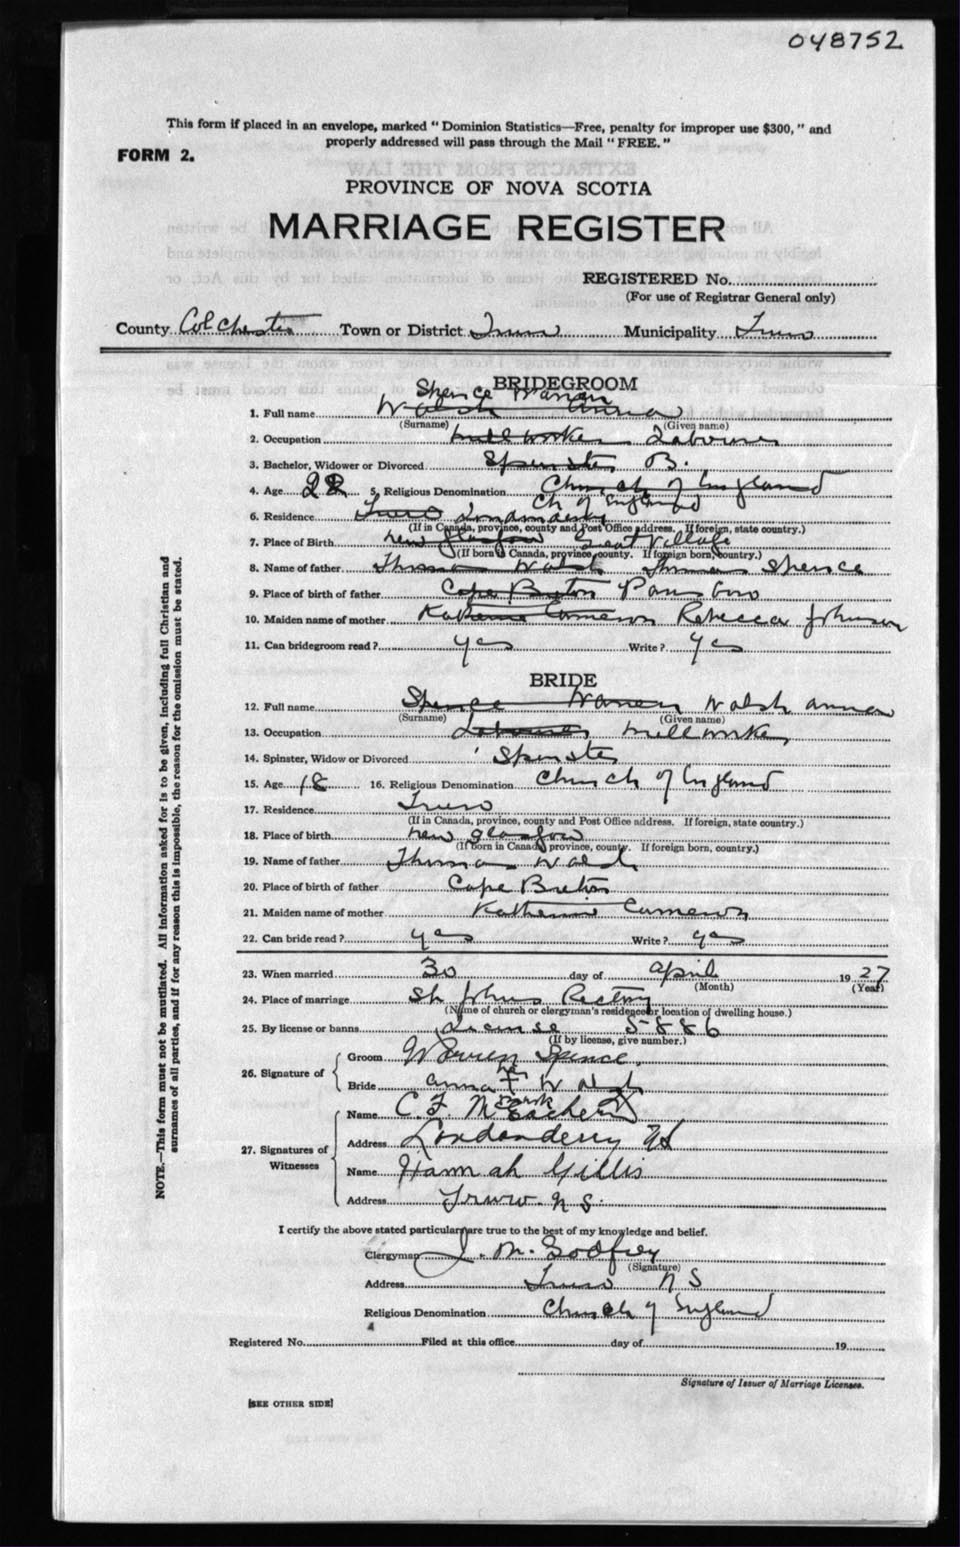 048752
This form if placed in an envelope, marked " Dominion Statistics—Free, penalty for improper use $300, " and
properly addressed will pass through the Mail " FREE. "
FORM 2.
PROVINCE OF NOVA SCOTIA
MARRIAGE REGISTER
REGISTERED No.
(For use of Registrar General only)
County Colchester Town or District Truro Municipality Truro
BRIDEGROOM
Spence Warren
1. Full name Walsh Anna
(Surname) (Given name)
2. Occupation mill worker Labourer
3. Bachelor, Widower or Divorced Spinster B.
4. Age 22 5. Religious Denomination Church of England
Ch of England
6. Residence Truro Londonderry
(If in Canada, province, county and Post Office address. If foreign, state country.)
7. Place of Birth New Glasgow Great Village
(If born in Canada, province, county. If foreign born, country.)
8. Name of father Thomas Walsh Thomas Spence
9. Place of birth of father Cape Breton Parrsboro
10. Maiden name of mother Katherine Cameron Rebecca Johnson
11. Can bridegroom read? yes Write? yes
BRIDE
12. Full name Spence Warren Walsh Anna
(Surname) (Given name)
13. Occupation Labourer mill worker
14. Spinster, Widow or Divorced Spinster
15. Age 18 16. Religious Denomination Church of England
17. Residence Truro
(If in Canada, province, county and Post Office address. If foreign, state country.)
18. Place of birth New Glasgow
(If born in Canada, province, county. If foreign born, country.)
19. Name of father Thomas Walsh
20. Place of birth of father Cape Breton
21. Maiden name of mother Katherine Cameron
22. Can bride read? yes Write? yes
23. When married 30 day of April 1927
(Month) (Year)
24. Place of marriage St Johns Rectory
(Name of church or clergyman's residence or location of dwelling house.)
25. By license or banns License 5886
(If by license, give number.)
26. Signature of
Groom Warren Spence.
her
Bride Anna + Walsh
mark
27. Signatures of Witnesses
Name C. F. McEachern
Address Londonderry NS
Name Hannah Gillis
Address Truro N S.
I certify the above stated particulars are true to the best of my knowledge and belief.
Clergyman J. M. Godfrey
(Signature)
Address Truro N S
Religious Denomination Church of England
Registered No. Filed at this office day of 19
Signature of Issuer of Marriage Licenses.
[SEE OTHER SIDE]
NOTE.—This form must not be mutilated. All information asked for is to be given, including full Christian and
surnames of all parties, and if for any reason this is impossible, the reason for the omission must be stated.